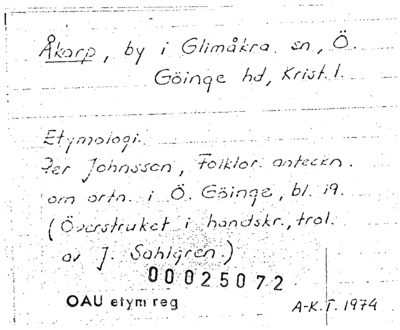 Åkarp, by i Glimåkra sn, Ö.
Göinge hd, Krist. l.
Etymologi.
Per Johnsson, Folklor. anteckn.
om ortn. i Ö. Göinge, bl. 19.
(Överstruket i handskr., trol.
av J. Sahlgren.)
00025072
OAU etym reg
A-K.T. 1974